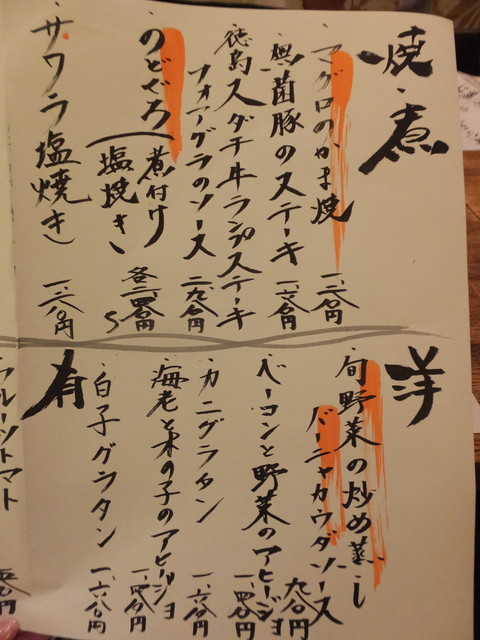 焼・煮
・マグロのかま焼 一、二八〇円
・無菌豚のステーキ 一、六八〇円
・徳島スダチ牛ランプステーキ
フォアグラのソース 二九八〇円
・のどぐろ
煮付け
塩焼き
各二、四八〇円〜
・サワラ塩焼き 一、二八〇円
洋
・旬野菜の炒め蒸し
バーニャカウダソース 九八〇円
・ベーコンと野菜のアヒージョ 一、四八〇円
・カニグラタン 一、六八〇円
・海老と木の子のアヒージョ 一、四八〇円
・白子グラタン 一、六八〇円
有
フルーツトマト